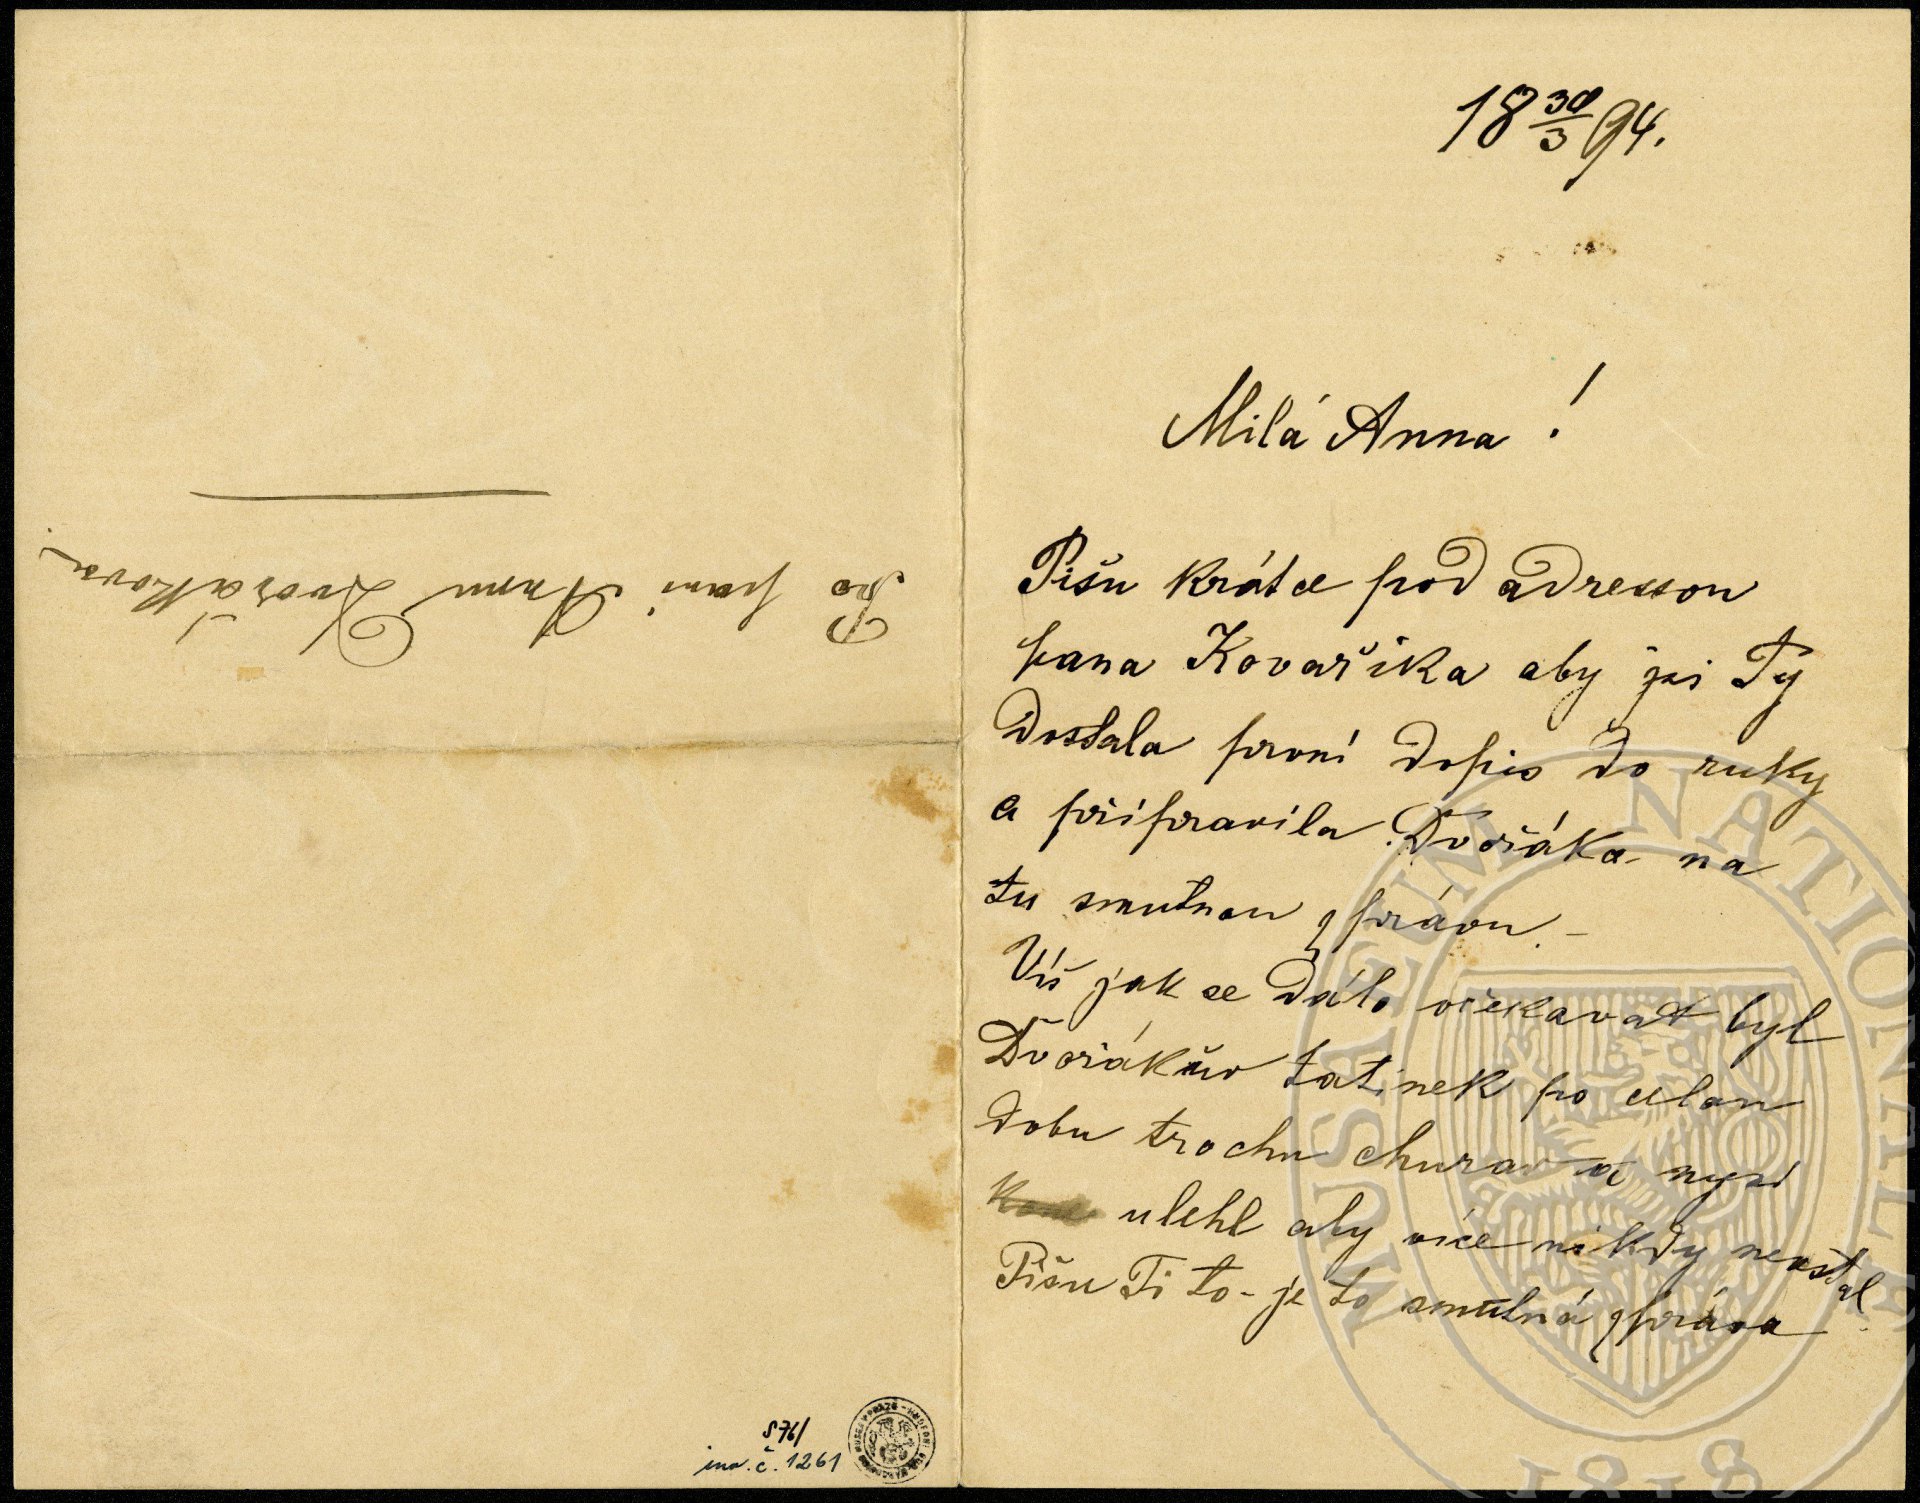 18 30/3 94.
Milá Anna!
Píšu krátce pod adressou
pana Kovaříka aby jsi Ty
dostala první dopis do ruky
a připravila Dvořáka na
tu smutnou zprávu. –
Víš jak se dálo očekávat byl
Dvořákův tatínek po celou
dobu trochu churav a nyní
ulehl aby více nikdy nevstal
Píšu Ti to – je to smutná zpráva
Pro paní Annu Dvořákovou.
S 76/
inv. č. 1261
MUSAEUM NATIONALE
1818